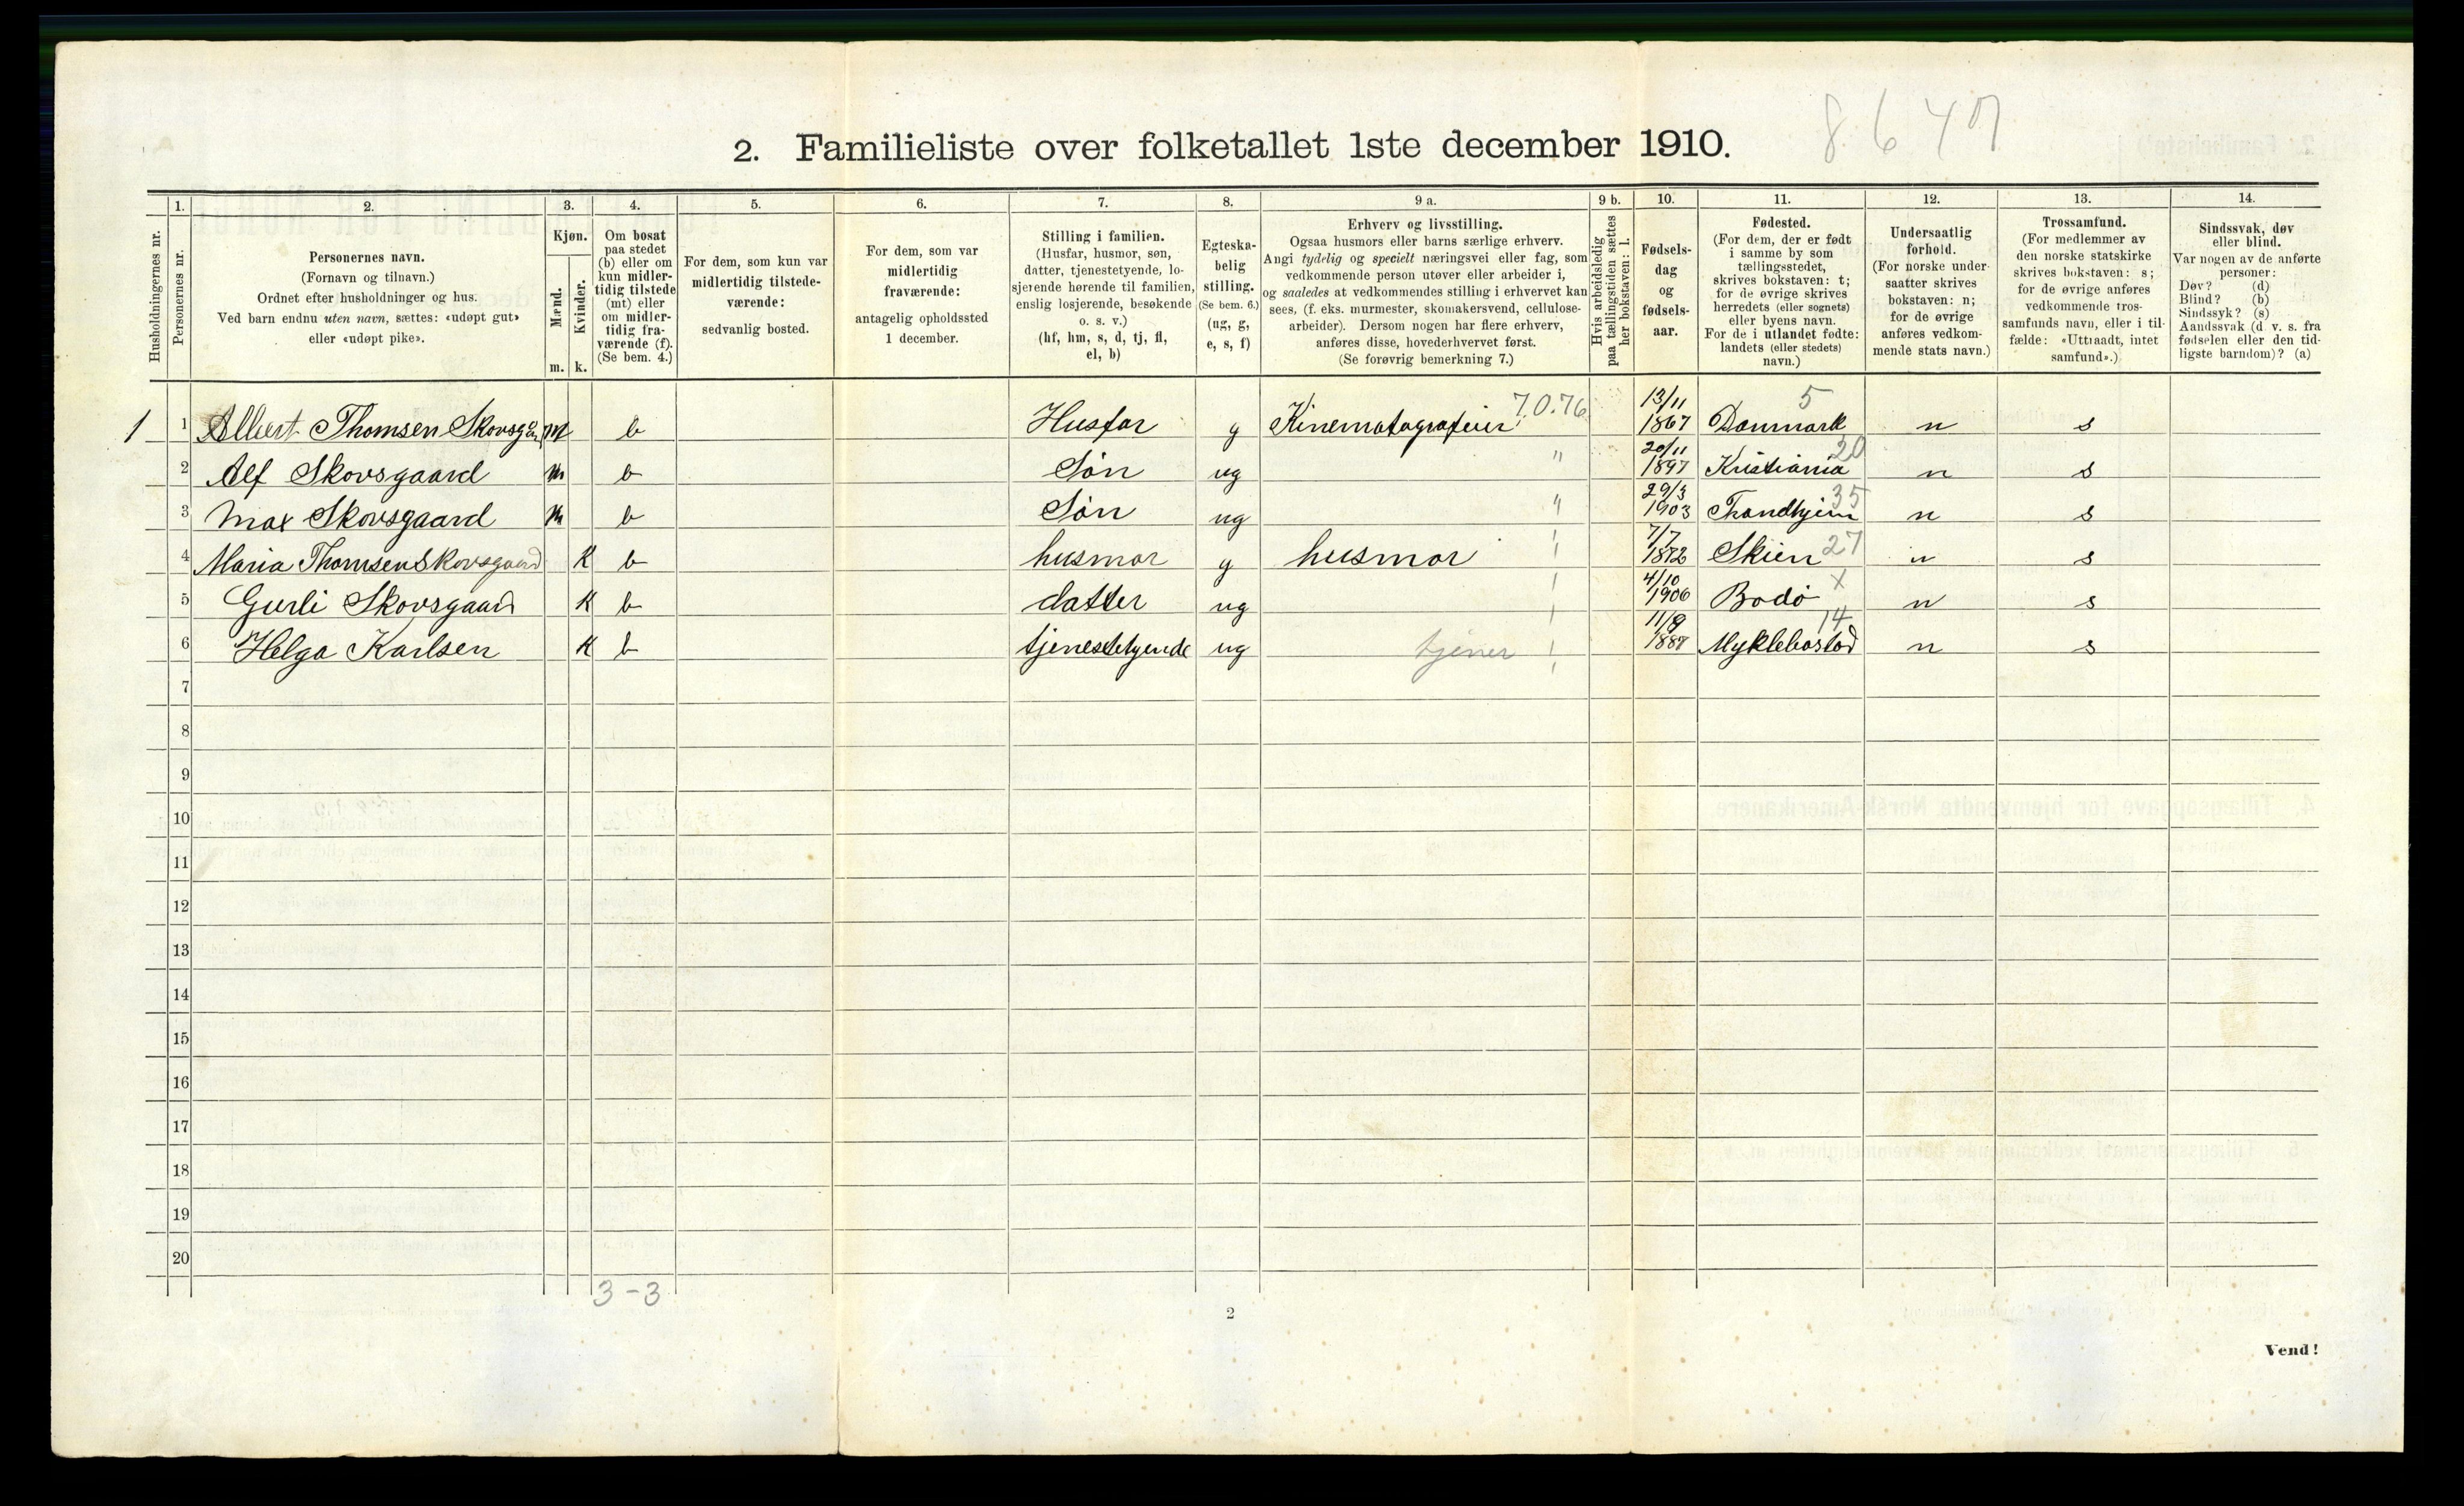 8.647
2. Familieliste over folketallet 1ste december 1910.
Husholdningernes nr.
1. Personernes nr.
2. Personernes navn.
(Fornavn og tilnavn.)
Ordnet efter husholdninger og hus.
Ved barn endnu uten navn, sættes: «udøpt gut»
eller «udøpt pike».
3. Kjøn.
Mænd. m.
Kvinder. k.
4. Om bosat
paa stedet
(b) eller om
kun midler-
tidig tilstede
(mt) eller
om midler-
tidig fra-
værende (f).
(Se bem. 4.)
5. For dem, som kun var
midlertidig tilstede-
værende:
sedvanlig bosted.
6. For dem, som var
midlertidig
fraværende:
antagelig opholdssted
1 december.
7. Stilling i familien.
(Husfar, husmor, søn,
datter, tjenestetyende, lo-
sjerende hørende til familien,
enslig losjerende, besøkende
o. s. v.)
(hf, hm, s, d, tj, fl,
el, b)
8. Egteska-
belig
stilling.
(Se bem. 6.)
(ug, g,
e, s, f)
9 a. Erhverv og livsstilling.
Ogsaa husmors eller barns særlige erhverv.
Angi tydelig og specielt næringsvei eller fag, som
vedkommende person utøver eller arbeider i,
og saaledes at vedkommendes stilling i erhvervet kan
sees, (f. eks. murmester, skomakersvend, cellulose-
arbeider). Dersom nogen har flere erhverv,
anføres disse, hovederhvervet først.
(Se forøvrig bemerkning 7.)
9 b. Hvis arbeidsledig
paa tællingstiden sættes
her bokstaven: l.
10. Fødsels-
dag
og
fødsels-
aar.
11. Fødested.
(For dem, der er født
i samme by som
tællingsstedet,
skrives bokstaven: t;
for de øvrige skrives
herredets (eller sognets)
eller byens navn.
For de i utlandet fødte:
landets (eller stedets)
navn.)
12. Undersaatlig
forhold.
(For norske under-
saatter skrives
bokstaven: n;
for de øvrige
anføres vedkom-
mende stats navn.)
13. Trossamfund.
(For medlemmer av
den norske statskirke
skrives bokstaven: s;
for de øvrige anføres
vedkommende tros-
samfunds navn, eller i til-
fælde: «Uttraadt, intet
samfund».)
14. Sindssvak, døv
eller blind.
Var nogen av de anførte
personer:
Døv? (d)
Blind? (b)
Sindssyk? (s)
Aandssvak (d. v. s. fra
fødselen eller den tid-
ligste barndom)? (a)
1 1 Albert Thomsen Skovsgård m b Husfar g Kinematografeier 7.0.76 13/11 1867 Danmark 5 n s
2 Alf Skovsgaard m b Søn ug " 20/11 1897 Kristiania 20 n s
3 Max Skovsgaard m b Søn ug " 29/3 1903 Trondhjem 35 n s
4 Maria Thomsen Skovsgaard K b husmor g husmor 7/7 1872 Skien 27 n s
5 Gurli Skovsgaard K b datter ug 4/10 1906 Bodø X n s
6 Helga Karlsen K b tjenestetyende ug tjener 11/9 1888 Myklebostad 14 n s
7
8
9
10
11
12
13
14
15
16
17
18
19
20
3-3
2
Vend!